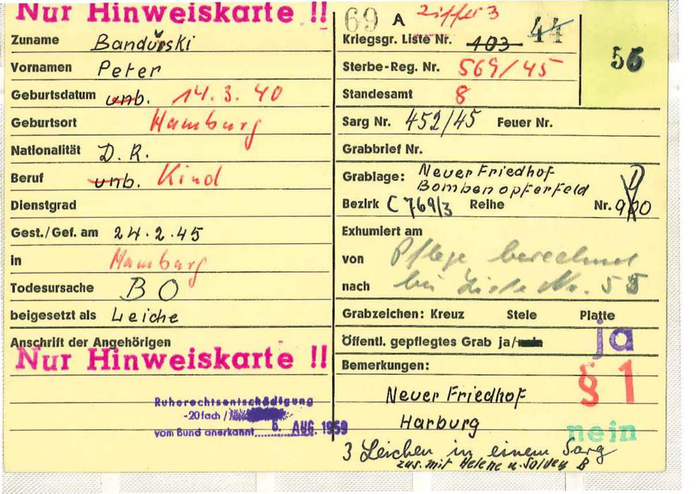 Nur Hinweiskarte !!
Zuname Bandurski
Vornamen Peter
Geburtsdatum unb. 14.3.40
Geburtsort Hamburg
Nationalität D.R.
Beruf unb. Kind
Dienstgrad
Gest./Gef. am 24.2.45
in Hamburg
Todesursache BO
beigesetzt als Leiche
Anschrift der Angehörigen
Nur Hinweiskarte !!
Ruherechtsentschädigung
-20fach /
vom Bund anerkannt 5. AUG. 1959
69 A Ziffer 3
Kriegsgr. Liste Nr. 103 44
56
Sterbe-Reg. Nr. 569/45
Standesamt 8
Sarg Nr. 452/45 Feuer Nr.
Grabbrief Nr.
Grablage: Neuer Friedhof
Bombenopferfeld
Bezirk C 769/3 Reihe Nr.
Exhumiert am
von Pflege berechnet
nach bei Liste Nr. 55
Grabzeichen: Kreuz Stele Platte
Öffentl. gepflegtes Grab ja/nein ja
Bemerkungen: § 1
Neuer Friedhof
Harburg
nein
3 Leichen in einem Sarg
zus. mit Helene u.